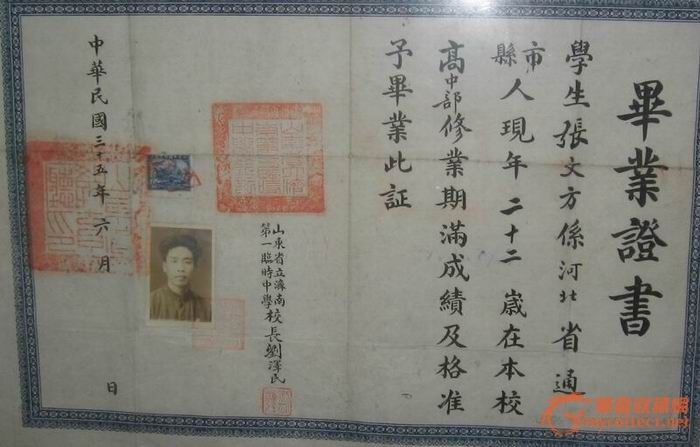 畢業證書
學生張文方係河北省通
縣市人現年二十二歲在本校
高中部修業期滿成績及格准
予畢業此証
山東省立濟南
第一臨時中學校長劉澤民
中華民國三十五年六月 日